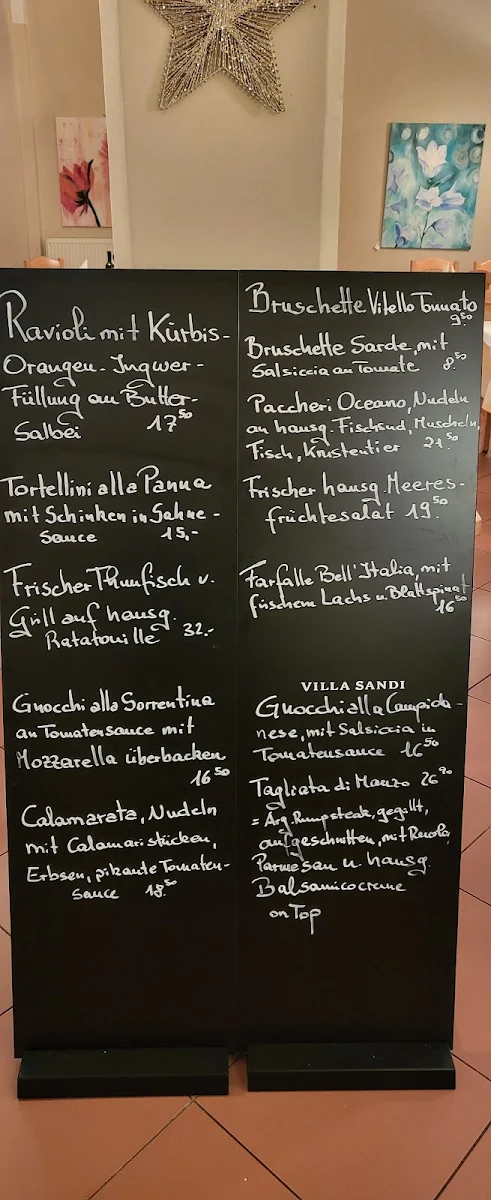 Ravioli mit Kürbis-
Orangen-Ingwer-
Füllung an Butter-
Salbei 17 50
Tortellini alla Panna
mit Schinken in Sahne-
Sauce 15,-
Frischer Thunfisch v.
Grill auf hausg.
Ratatouille 32.-
Gnocchi alla Sorrentina
an Tomatensauce mit
Mozzarella überbacken
16 50
Calamarata, Nudeln
mit Calamaristücken,
Erbsen, pikante Tomaten-
Sauce 18.50
Bruschette Vitello Tonnato
9 50
Bruschette Sarde, mit
Salsiccia an Tomate 8.50
Paccheri Oceano, Nudeln
an hausg. Fischsud, Muscheln,
Fisch, Krustentier 21.50
Frischer hausg. Meeres-
früchtesalat 19.50
Farfalle Bell'Italia, mit
frischem Lachs u. Blattspinat
16 50
VILLA SANDI
Gnocchi alla Campida-
nese, mit Salsiccia in
Tomatensauce 16 50
Tagliata di Manzo 26 90
= Arg. Rumpsteak, gegrillt,
aufgeschnitten, mit Rucola,
Parmesan u. hausg.
Balsamicocreme
on Top